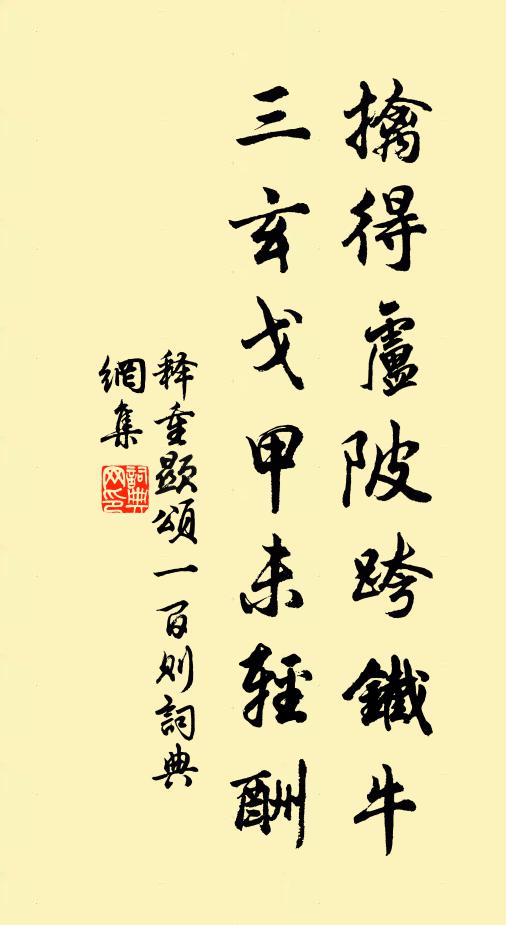 擒得盧陂跨鐵牛
三玄戈甲未輕酬
释重顯頌一百则詞典
網集
詞典網印